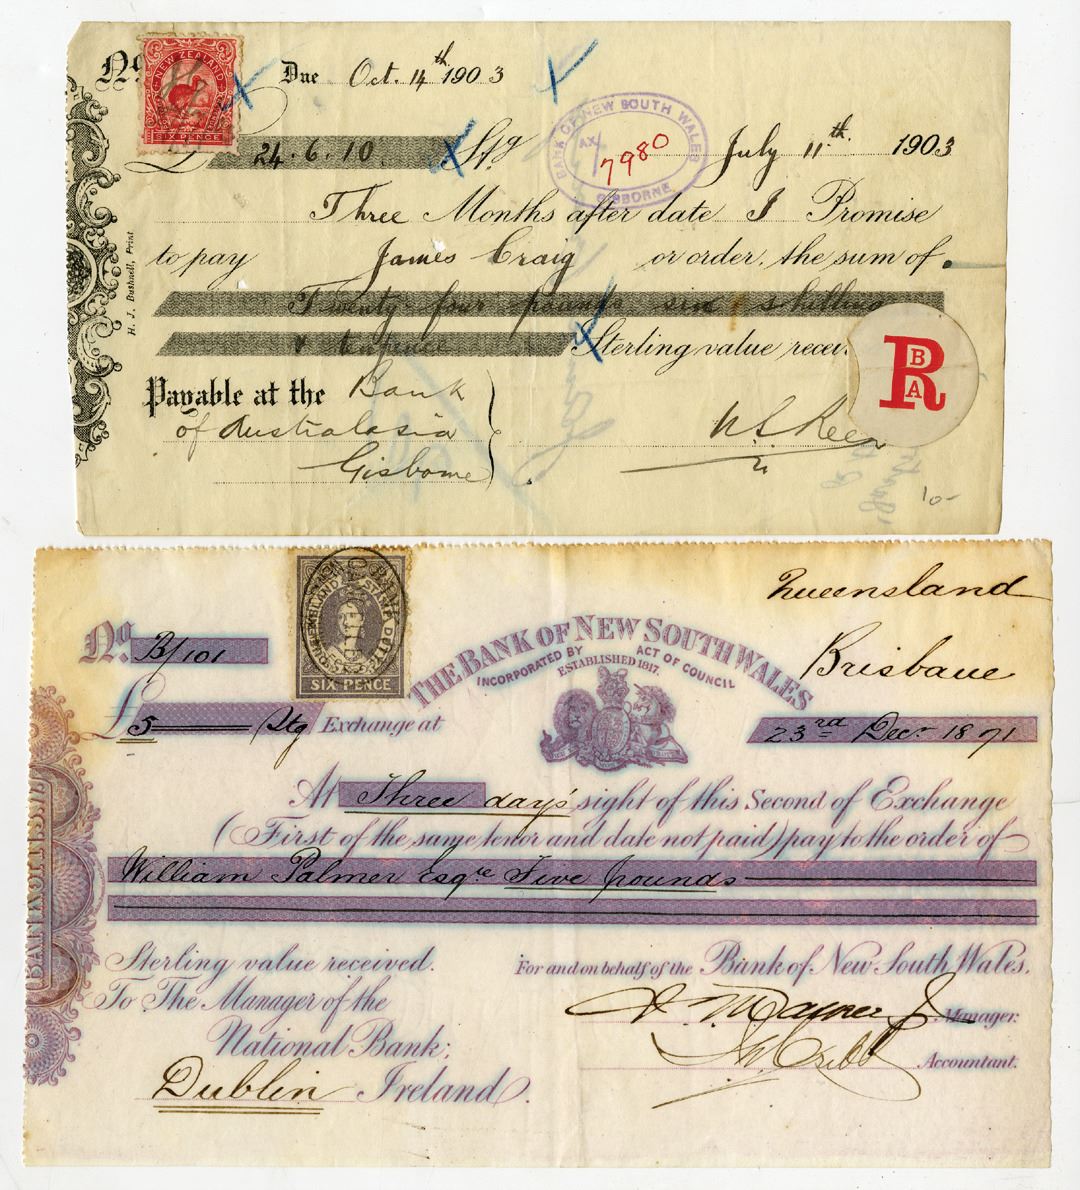 No
NEW ZEALAND
SIX PENCE
Due Oct. 14th 1903
£ 24.6.10. Stg
BANK OF NEW SOUTH WALES
7980
GISBORNE
July 11th 1903
Three Months after date I Promise
to pay James Craig or order, the sum of
Twenty four pounds six shilling
& tenpence Sterling value recei
H. J. Bushnell, Print
R
B
A
Payable at the Bank
of Australasia
Gisborne
10-
Queensland
Brisbane
No. B/101
SIX PENCE
THE BANK OF NEW SOUTH WALES
INCORPORATED BY ACT OF COUNCIL
ESTABLISHED 1817.
£ 5 Stg Exchange at
23rd Decr 1871
At Three days' sight of this Second of Exchange
(First of the same tenor and date not paid) pay to the order of
William Palmer Esqre Five pounds
Sterling value received.
For and on behalf of the Bank of New South Wales.
To The Manager of the
Manager.
National Bank;
Accountant.
Dublin Ireland.